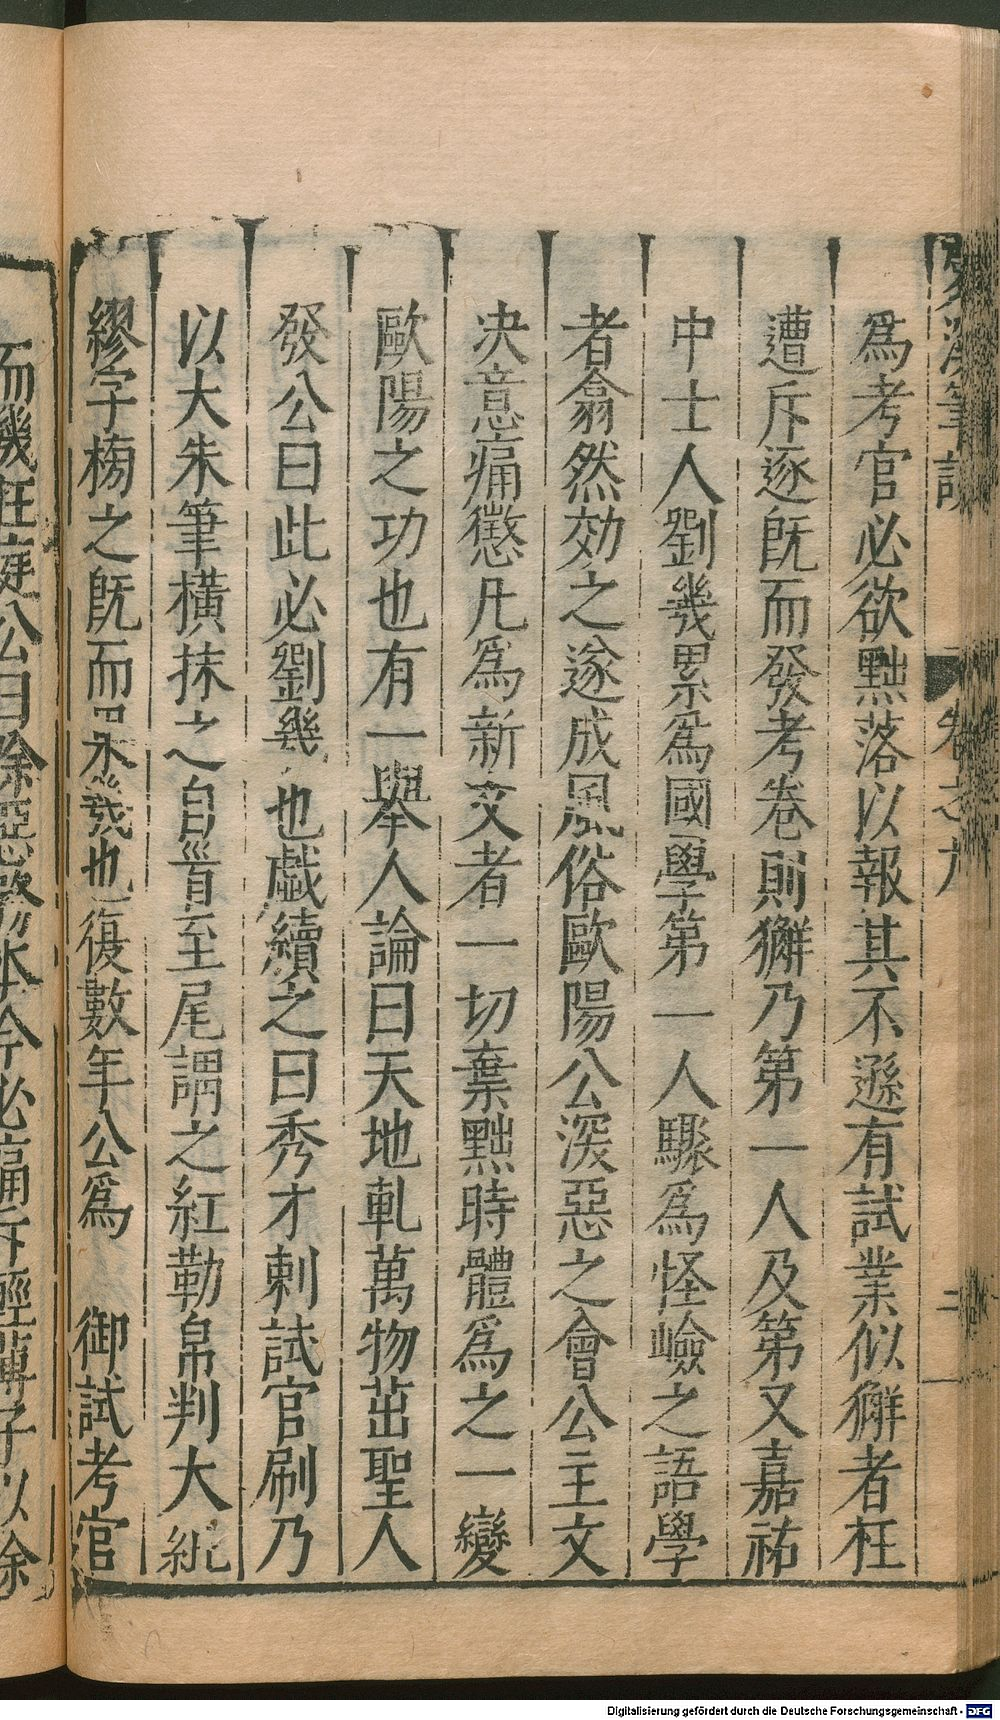 爲考官必欲黜落以報其不遜有試業似獬者枉
遭斥逐旣而發考卷則獬乃第一人及第又嘉祐
中士人劉幾累爲國學第一人驟爲怪嶮之語學
者翕然効之遂成風俗歐陽公深惡之會公主文
决意痛懲凡爲新文者一切棄黜時體爲之一變
歐陽之功也有一舉人論曰天地軋萬物茁聖人
發公曰此必劉幾也戲續之曰秀才剌試官刷乃
以大朱筆橫抹之自首至尾謂之紅勒帛判大紕
繆字榜之旣而果幾也復數年公爲 御試考官
而幾在庭公曰除惡務本今必痛斥輕薄子以除
Digitalisierung gefördert durch die Deutsche Forschungsgemeinschaft - DFG